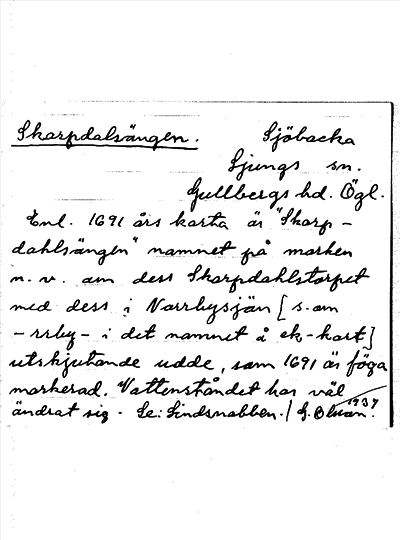 Skarpdalsängen. Sjöbacka
Ljungs sn.
Gullbergs hd. Ögl.
Enl. 1691 års karta är "Skarp-
dahlsängen" namnet på marken
n. v. om dess Skarpdahlstorpet
med dess i Norrbysjön [s. om
-rrby- i det namnet å ek-kart]
utskjutande udde, som 1691 är föga
markerad. Vattenståndet har väl
ändrat sig. Se: Lindsnabben. / G.
1937